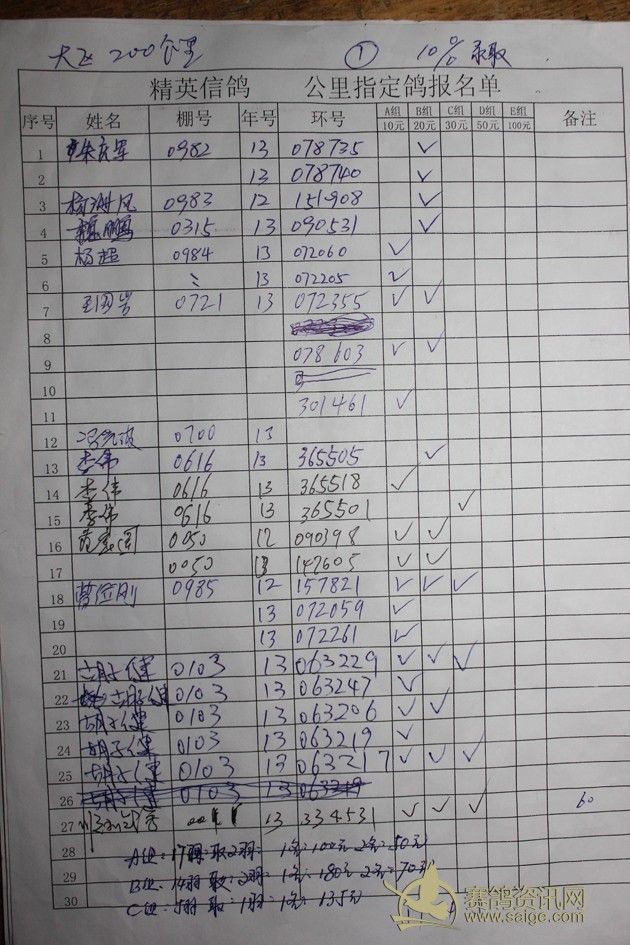 大飞 200公里 ① 10% 录取
精英信鸽 公里指定鸽报名单
序号 姓名 棚号 年号 环号 A组 10元 B组 20元 C组 30元 D组 50元 E组 100元 备注
1 0982 13 078735 ✓
2 13 078740 ✓
3 0983 12 151908 ✓
4 鹏 0315 13 090531 ✓
5 杨超 0984 13 072060 ✓
6 13 072205 ✓
7 0721 13 072355 ✓ ✓
8
9 078603 ✓ ✓
10
11 301461 ✓
12 0700 13
13 李伟 0616 13 365505 ✓
14 李伟 0616 13 365518 ✓
15 李伟 0616 13 365501 ✓
16 0050 12 090398 ✓ ✓
17 0050 13 147605 ✓ ✓
18 曹位刚 0985 12 157821 ✓ ✓ ✓
19 13 072059 ✓
20 13 072261 ✓
21 胡子健 0103 13 063229 ✓ ✓ ✓
22 胡子健 0103 13 063247 ✓
23 胡子健 0103 13 063206 ✓ ✓
24 胡子健 0103 13 063219 ✓
25 胡子健 0103 13 063217 ✓ ✓ ✓
26 胡子健 0103 13 063219
27 13 334531 ✓ ✓ ✓ 60
28 A组:17羽:取2羽: 1名:100元 2名:50元
29 B组:14羽 取:2羽: 1名:180元 2名:70元
30 C组:5羽 取:1羽:1名:135元
赛鸽资讯网
www.saige.com